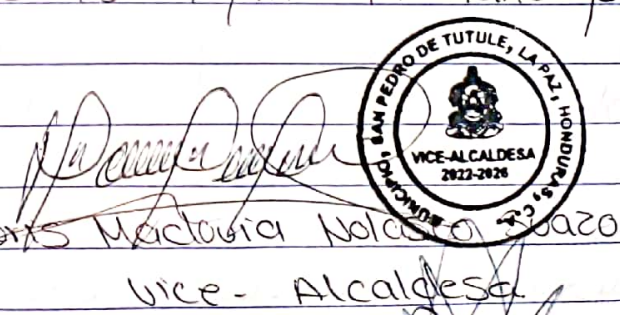 MUNICIPIO, SAN PEDRO DE TUTULE, LA PAZ, HONDURAS, C.A.
VICE-ALCALDESA
2022-2026
Madovia Nolasco Suazo
Vice - Alcaldesa